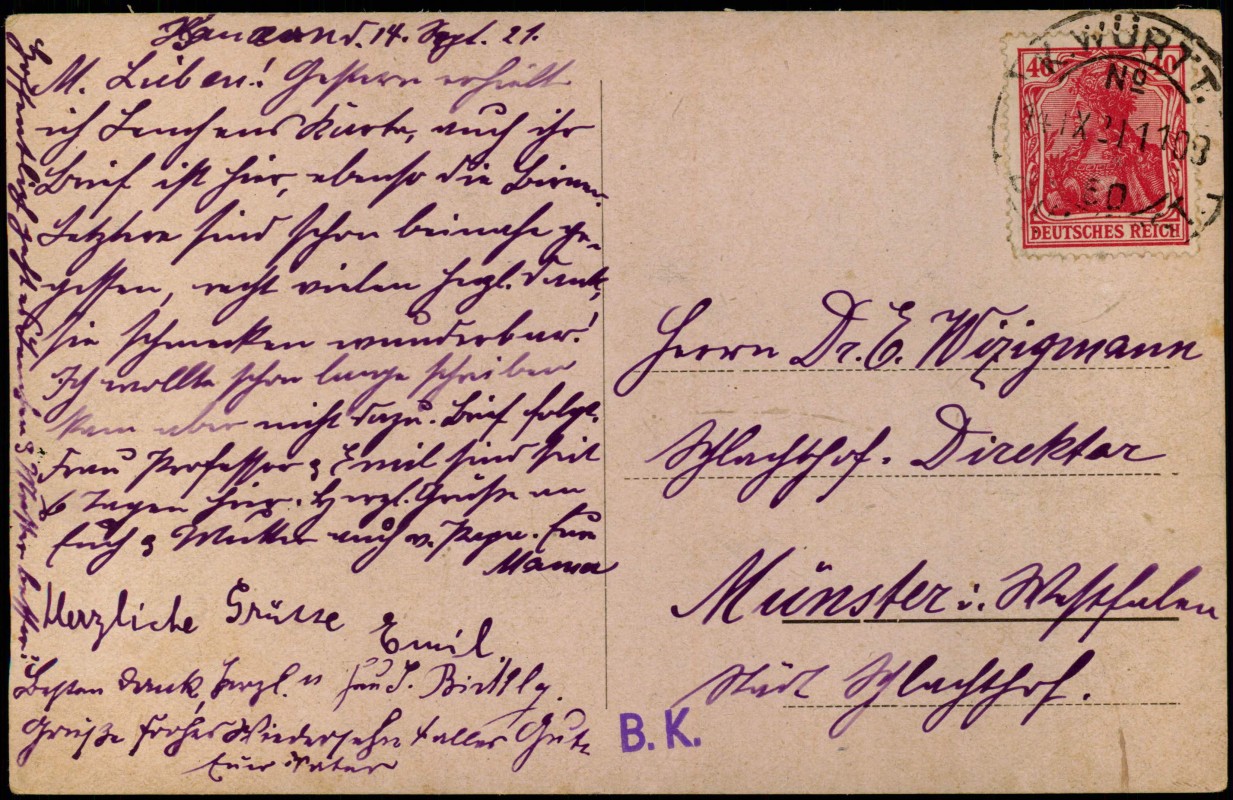 d. 14. Sept. 21.
M. Lieben! Gestern erhielt
ich Lenchens Karte, auch ihr
Brief ist hier, ebenso die Birnen.
Letztere sind schon beinahe ge-
gessen, recht vielen herzl. Dank,
sie schmecken wunderbar!
Ich wollte schon lange schreiben
kam aber nicht dazu. Brief folgt.
Frau Professor & Emil sind seit
6 Tagen hier. Herzl. Grüße an
Euch & Mutter auch v. Papa. Eure
Mama
Herzliche Grüsse
Emil
Besten Dank, herzl. u
Grüße frohes Wiedersehn + alles Gute
Euer Vater
Hoffentlich geht es
B. K.
N. WÜRTT.
No
40 40
DEUTSCHES REICH
Herrn Dr. E. Wizigmann
Schlachthof-Direktor
Münster i. Westfalen
Städt Schlachthof.